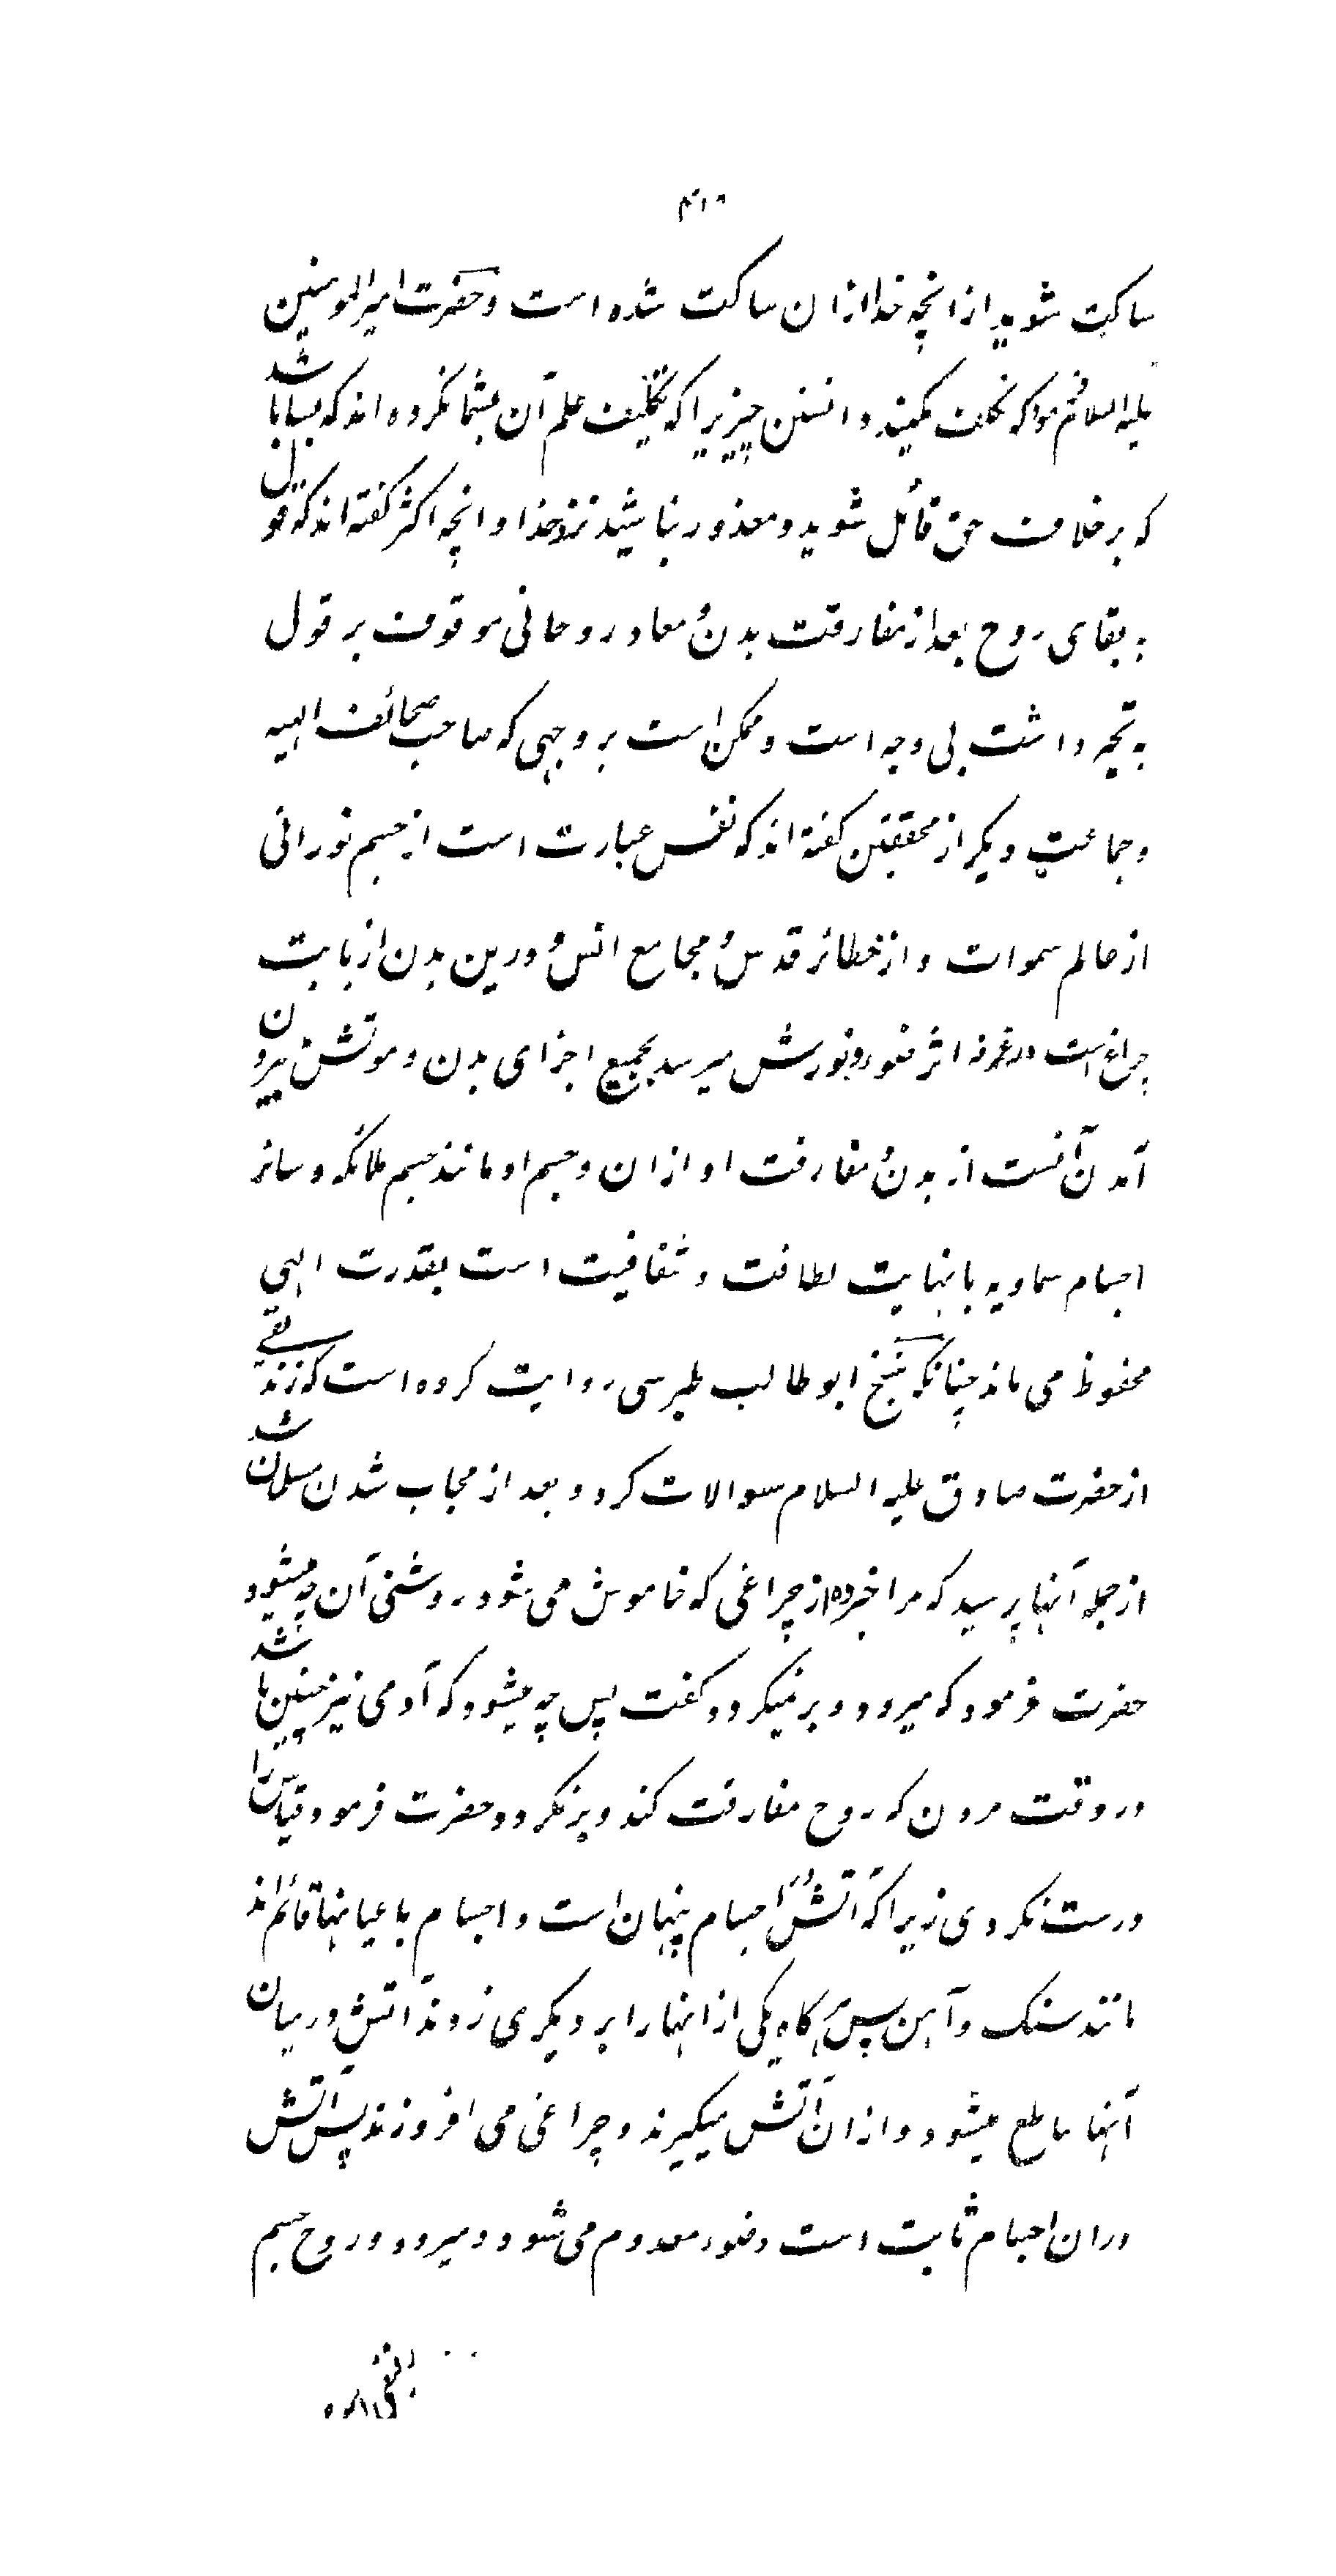 ۴۱۰
ساکت شوید از انچه خدا ازان ساکت شده است و حضرت امیر المومنین
علیه السلام فرمود که تکلف مکنید دانستن چیزیرا که تکلیف علم آن بشما نکرده اند که بسا باشد
که بر خلاف حق قائل شوید و معذور نباشید نزد خدا و انچه اکثر گفته اند که قول
به بقای روح بعد از مفارقت بدن و معاد روحانی موقوف بر قول
به تجرد است بی وجه است و ممکن است بر وجهی که صاحب صحائف الهیه
و جماعت دیگر از محققین گفته اند که نفس عبارت است از جسم نورانی
از عالم سموات و از خطائر قدس و مجامع انس و درین بدن از بابت
چراغ است در غرفه اثر ضوء و نورش میرسد بجمیع اجزای بدن و موتش بیرون
آمدن آنست از بدن و مفارقت او ازان و جسم او مانند جسم ملائکه و سائر
اجسام سماویه با نهایت لطافت و شفافیت است بقدرت الهی
محفوظ می ماند چنانکه شیخ ابو طالب طبرسی روایت کرده است که زندیقے
از حضرت صادق علیه السلام سوالات کرد و بعد از مجاب شدن مسلمان شد
از جمله آنها پرسید که مرا خبر ده از چراغی که خاموش می شود روشنی آن چه میشود
حضرت فرمود که میرود و بر نمیگردد گفت پس چه میشود که آدمی نیز چنین باشد
در وقت مردن که روح مفارقت کند و بر نگردد حضرت فرمود قیاس را
درست نکردی زیرا که آتش در اجسام پنهان است و اجسام باعیانها قائم اند
مانند سنگ و آهن پس هرگاه یکی از انها را بر دیگری زدند آتش درمیان
آنها ساطع میشود و ازان آتش میگیرند و چراغی می افروزند پس آتش
دران اجسام ثابت است و ضوء معدوم می شود و میرود و روح جسم